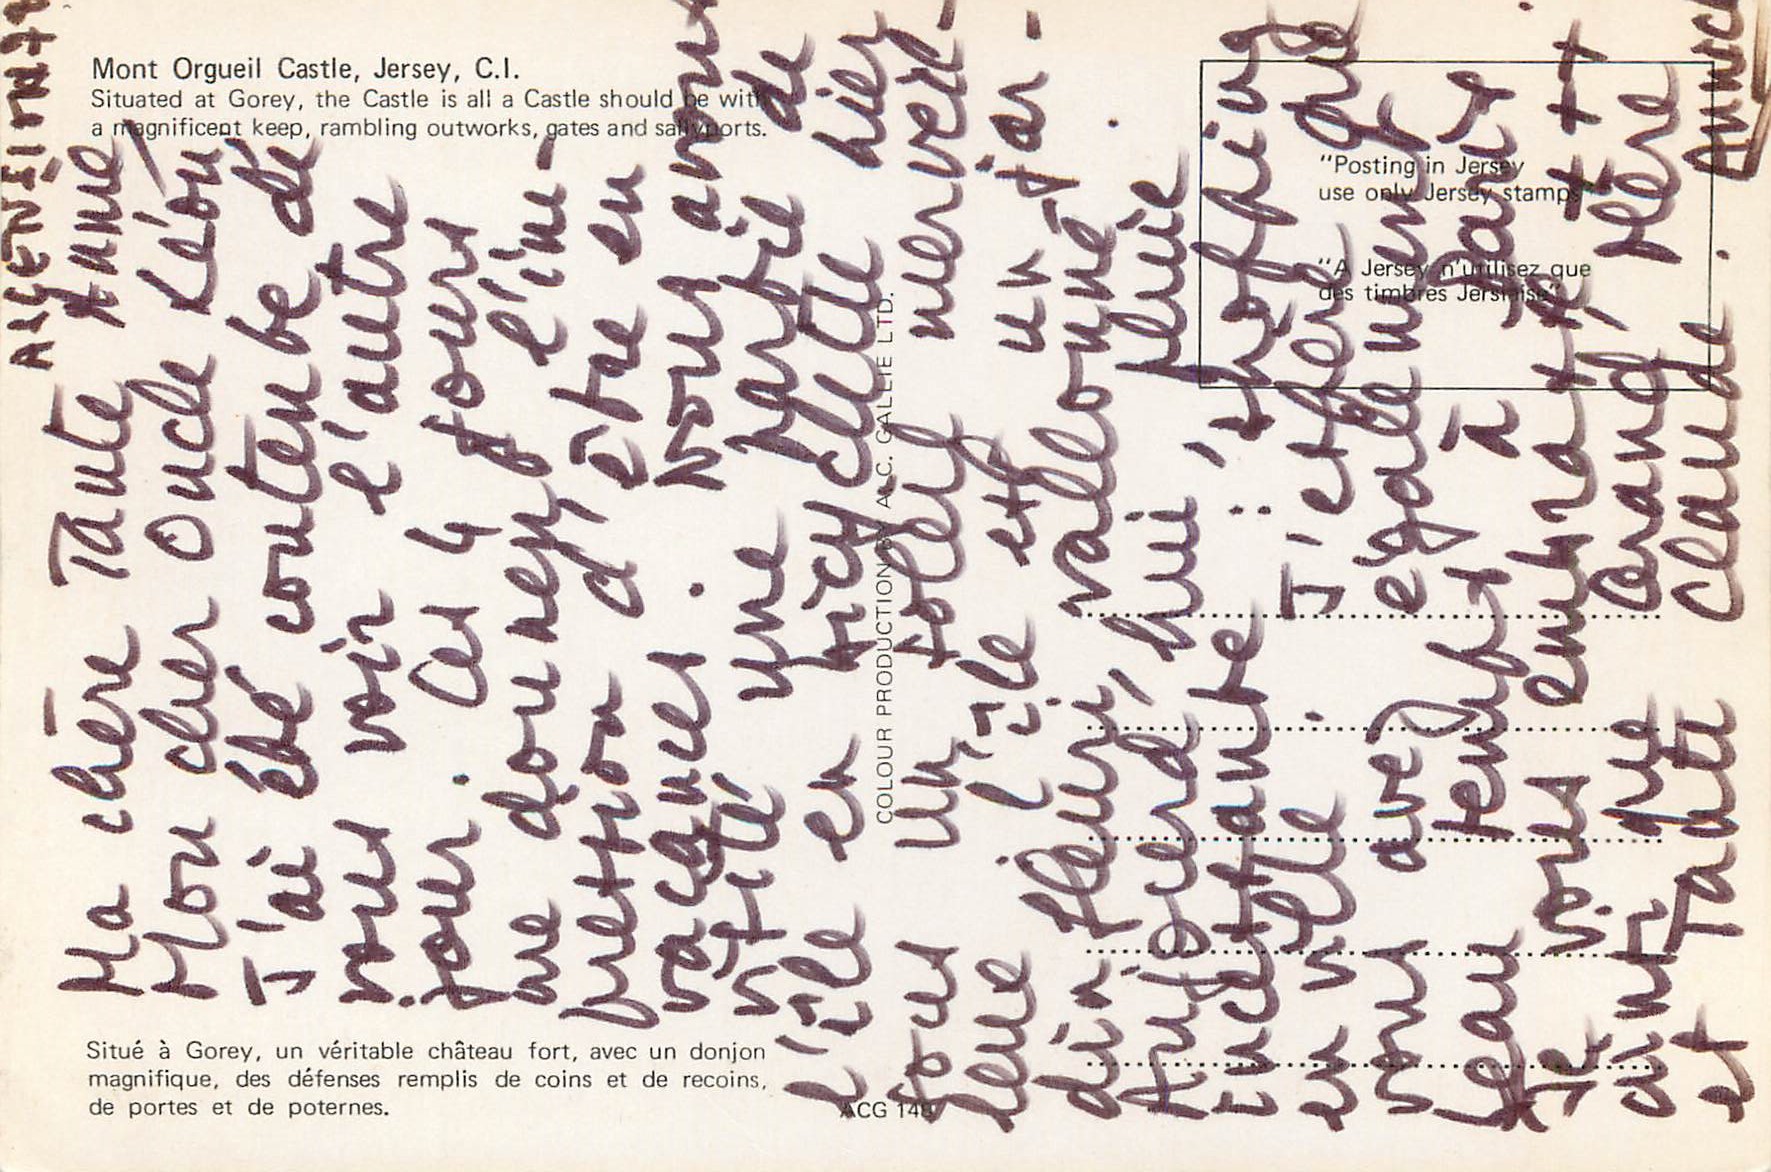 Mont Orgueil Castle, Jersey, C.I.
Situated at Gorey, the Castle is all a Castle should be with
a magnificent keep, rambling outworks, gates and sallyports.
"Posting in Jersey
use only Jersey stamps"
"A Jersey n'utilisez que
des timbres Jersiaise"
COLOUR PRODUCTION BY A.C. GALLIE LTD.
Situé à Gorey, un véritable château fort, avec un donjon
magnifique, des défenses remplis de coins et de recoins,
de portes et de poternes.
ACG 148
Ma chère Tante Anne
Mon cher Oncle Léon
J'ai été contente de
vous voir l'autre
jour. Ces 4 jours
me donnent l'im-
pression d'être en
vacances. Nous avons
visité une partie de
l'île en bicyclette hier
sous un soleil merveil-
leux. l'île est un jar-
din fleuri, vallonné.
Aujourd'hui, pluie
incessante : shopping
en ville. J'espère que
vous avez également
beau temps à Paris
Je vous embrasse
ainsi que Grand, Mère
et Tante Claude.
Annick